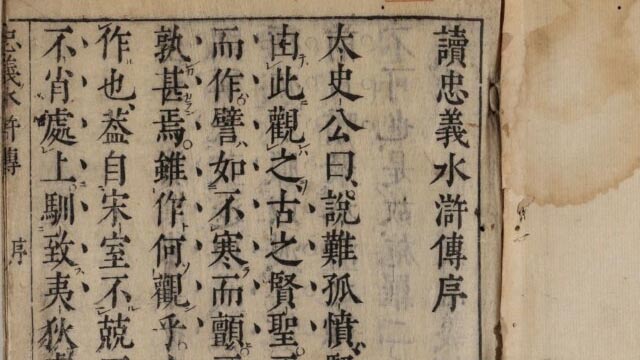 讀忠義水滸傳序
太史公曰說難孤憤
由此觀之古之賢聖
而作譬如不寒而顫
孰甚焉雖作何觀乎
作也葢自宋室不兢
不肖處上馴致夷狄
忠義水滸傳 序